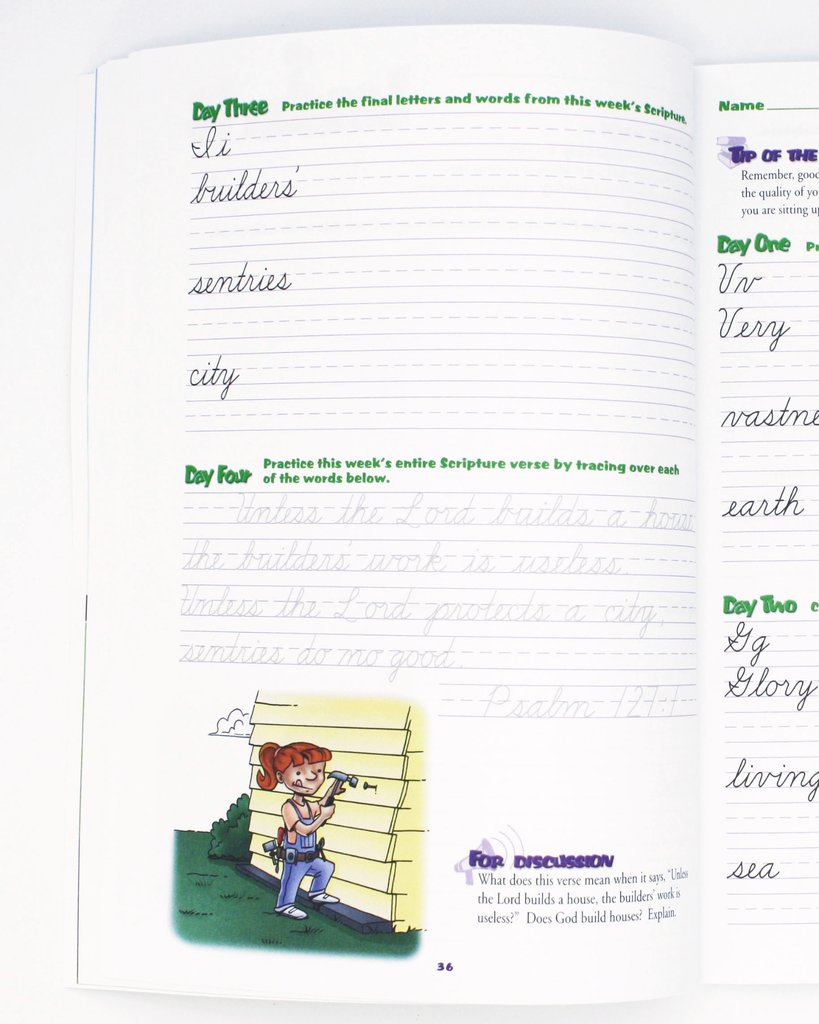 Day Three Practice the final letters and words from this week's Scripture.
Ii
builders'
sentries
city
Day Four Practice this week's entire Scripture verse by tracing over each
of the words below.
Unless the Lord builds a house
the builders' work is useless.
Unless the Lord protects a city,
sentries do no good.
Psalm 127:1
For discussion
What does this verse mean when it says, "Unless
the Lord builds a house, the builders' work is
useless?" Does God build houses? Explain.
36
Name
Tip of the
Remember, good
the quality of yo
you are sitting up
Day One Pr
Vv
Very
vastne
earth
Day Two C
Gg
Glory
living
sea